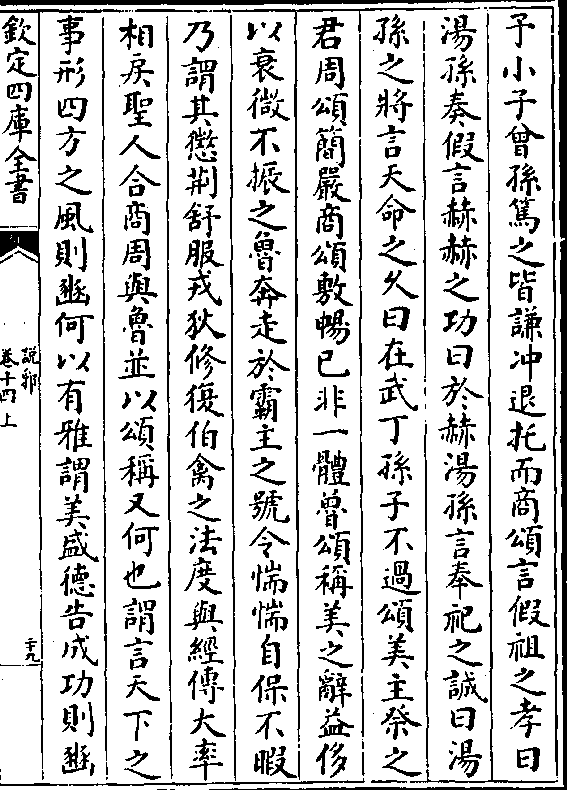 予小子曾孫篤之皆謙沖退托而商頌言假祖之孝曰
湯孫奏假言赫赫之功曰於赫湯孫言奉祀之誠曰湯
孫之將言天命之久曰在武丁孫子不過頌美主祭之
君周頌簡嚴商頌敷暢已非一體魯頌稱美之辭益侈
以衰微不振之魯奔走於霸主之號令惴惴自保不暇
乃謂其懲荆舒服戎狄修復伯禽之法度與經傳大率
相戾聖人合商周與魯並以頌稱又何也謂言天下之
事形四方之風則豳何以有雅謂美盛德告成功則豳
欽定四庫全書
說郛
卷十四上
二十九